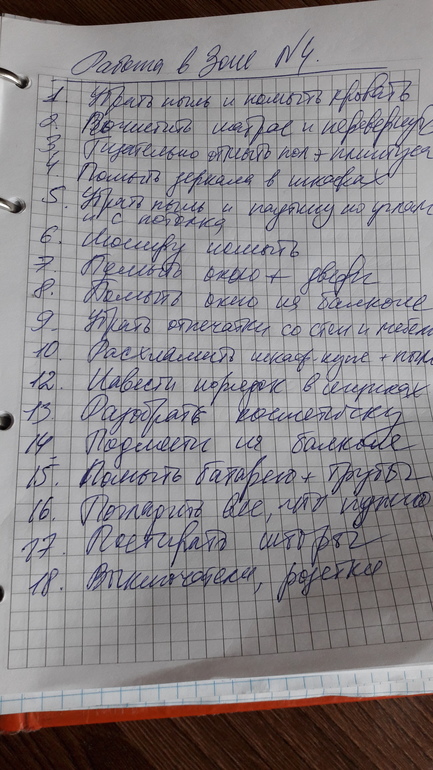 Работа в Зоне №4.
1. Убрать пыль и помыть кровать
2. Почистить матрас и перевернуть
3. Тщательно отмыть пол + плинтуса
4. Помыть зеркала в шкафах
5. Убрать пыль и паутину по углам
и с потолка
6. Люстру помыть
7. Помыть окно + двери
8. Помыть окно на балконе
9. Убрать отпечатки со стен и мебели
10. Расхламить шкаф-купе + пыль
12. Навести порядок в ящиках
13. Разобрать косметичку
14 Подмести на балконе
15. Помыть батарею + трубы
16. Погладить все, что нужно
17. Постирать шторы
18. Выключатели, розетки